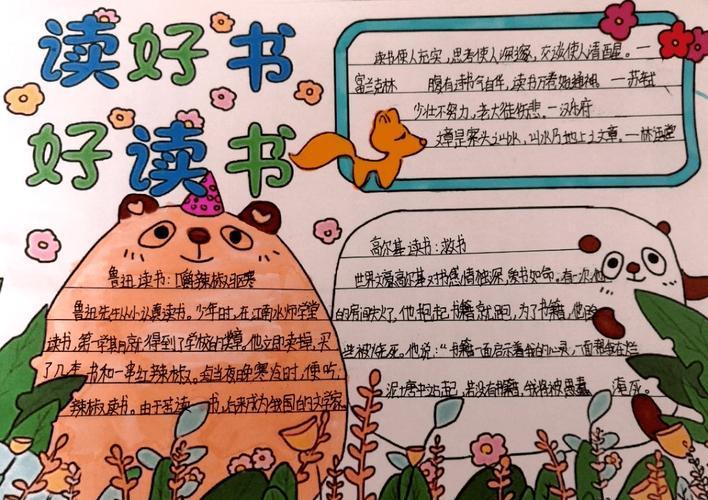 读好书
好读书
读书使人充实，思考使人深邃，交谈使人清醒。一
富兰克林 腹有诗书气自华，读书万卷始通神。一苏轼
少壮不努力，老大徒伤悲。一汉乐府
文章是案头之山水，山水乃地上之文章。一林语堂
鲁迅读书：嚼辣椒驱寒
鲁迅先生从小认真读书。少年时，在江南水师学堂
读书，第一学期期末就得到了学校的奖章。他立即卖掉，买
了几本书和一串红辣椒。每当夜晚寒冷时，便吃
辣椒读书。由于苦读书，后来成为我国的文学家
高尔基读书：救书
世界文豪高尔基对书感情独深，爱书如命。有一次他
的房间失火了，他抱起书籍就跑，为了书籍，他险
些被烧死。他说："书籍一面启示着我的心灵，一面帮我在烂
泥塘中站起，若没有书籍，我将被愚蠢 淹死。